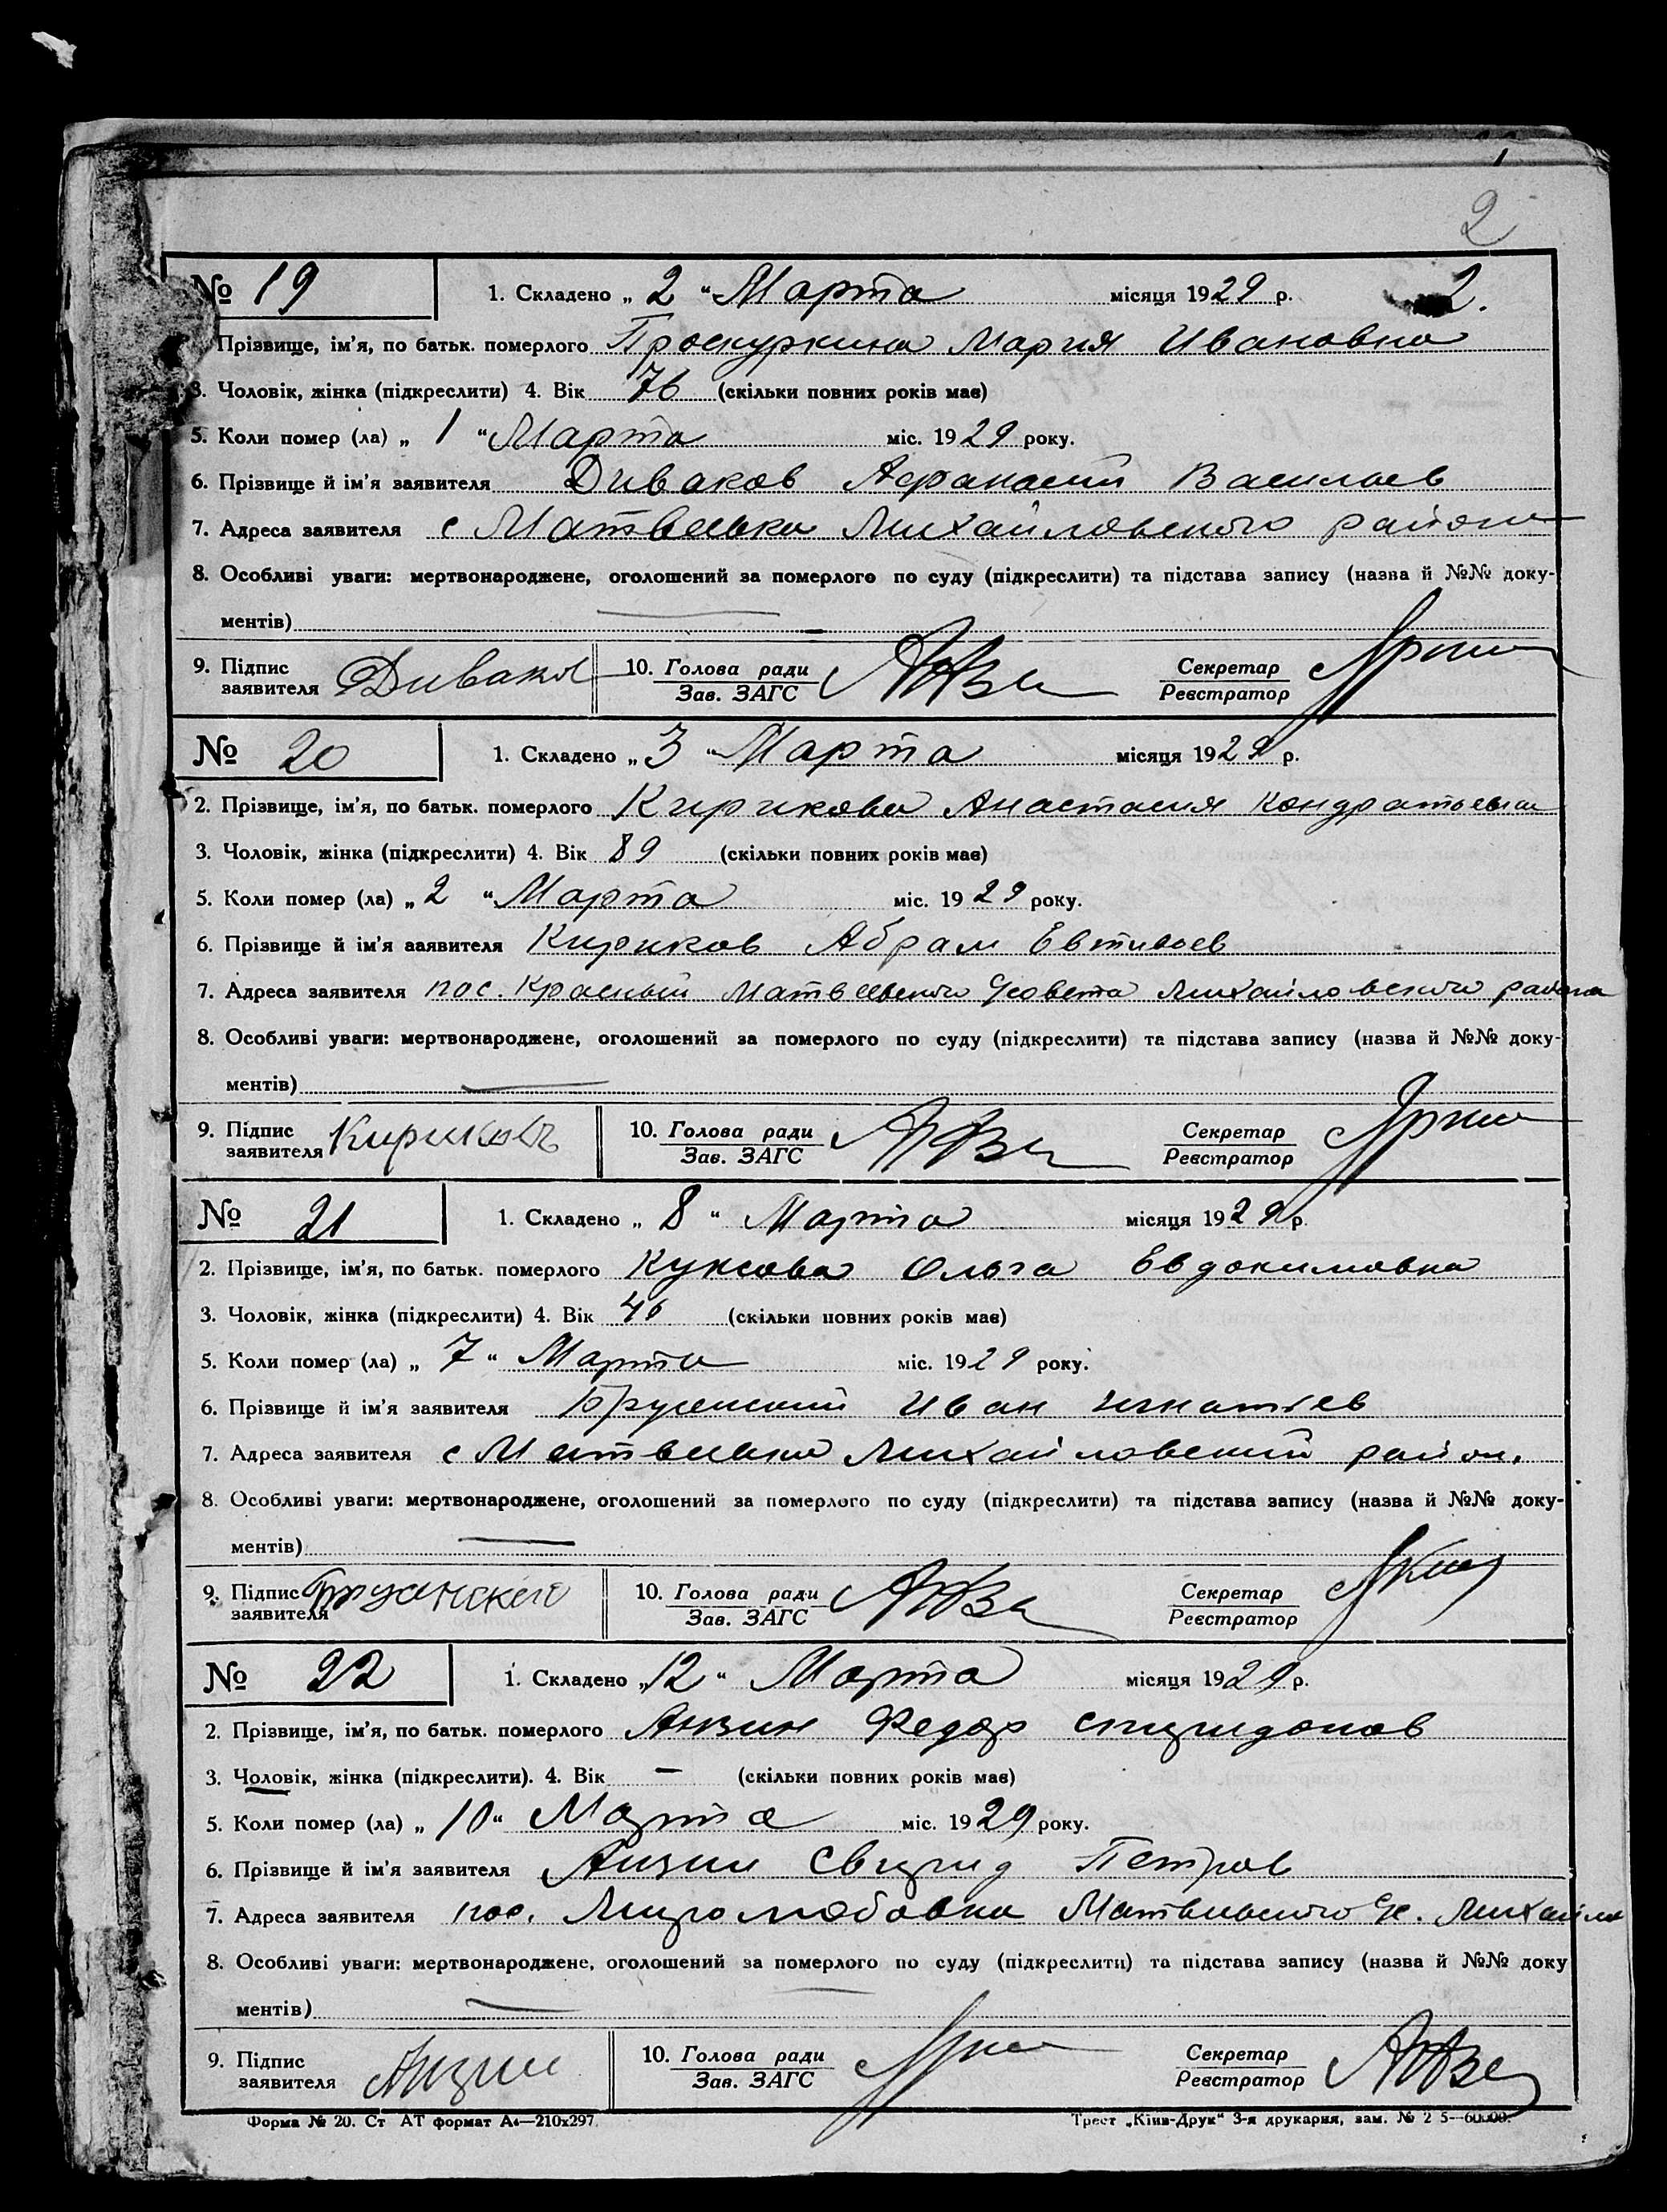 2
№ 19 1. Складено „ 2 “ Марта місяця 1929 р. 2.
Прізвище, ім’я, по батьк. померлого Проскуркина Мария Ивановна
3. Чоловік, жінка (підкреслити) 4. Вік 76 (скільки повних років має)
5. Коли помер (ла) „ 1 “ Марта міс. 1929 року.
6. Прізвище й ім’я заявителя Диваков Афанасий Васильев
7. Адреса заявителя с Матвеевка Михайловского района
8. Особливі уваги: мертвонароджене, оголошений за померлого по суду (підкреслити) та підстава запису (назва й №№ доку-
ментів)
9. Підпис заявителя Диваков 10. Голова ради Зав. ЗАГС Секретар Реєстратор
№ 20 1. Складено „ 3 “ Марта місяця 1929 р.
2. Прізвище, ім’я, по батьк. померлого Кирикова Анастасия Кондратьевна
3. Чоловік, жінка (підкреслити) 4. Вік 89 (скільки повних років має)
5. Коли помер (ла) „ 2 “ Марта міс. 1929 року.
6. Прізвище й ім’я заявителя Кириков Абрам
7. Адреса заявителя пос. Красный Матвеевского С/совета Михайловского района
8. Особливі уваги: мертвонароджене, оголошений за померлого по суду (підкреслити) та підстава запису (назва й №№ доку-
ментів)
9. Підпис заявителя Кириковъ 10. Голова ради Зав. ЗАГС Секретар Реєстратор
№ 21 1. Складено „ 8 “ Марта місяця 1929 р.
2. Прізвище, ім’я, по батьк. померлого Куксова Ольга Евдокимовна
3. Чоловік, жінка (підкреслити) 4. Вік 46 (скільки повних років має)
5. Коли помер (ла) „ 7 “ Марта міс. 1929 року.
6. Прізвище й ім’я заявителя Иван Игнатьев
7. Адреса заявителя с Матвеевка Михайловский район.
8. Особливі уваги: мертвонароджене, оголошений за померлого по суду (підкреслити) та підстава запису (назва й №№ доку-
ментів)
9. Підпис заявителя 10. Голова ради Зав. ЗАГС Секретар Реєстратор
№ 22 1. Складено „ 12 “ Марта місяця 1929 р.
2. Прізвище, ім’я, по батьк. померлого Анзин Федор Спиридонов
3. Чоловік, жінка (підкреслити). 4. Вік – (скільки повних років має)
5. Коли помер (ла) „ 10 “ Марта міс. 1929 року.
6. Прізвище й ім’я заявителя Анзин Свирид Петров
7. Адреса заявителя пос. Миролюбовка Матвеевского Сс. Михайло
8. Особливі уваги: мертвонароджене, оголошений за померлого по суду (підкреслити) та підстава запису (назва й №№ доку
ментів)
9. Підпис заявителя Анзин 10. Голова ради Зав. ЗАГС Секретар Реєстратор
Форма № 20. Ст АТ формат А4—210х297. Трест „Київ-Друк“ 3-я друкарня, зам. №